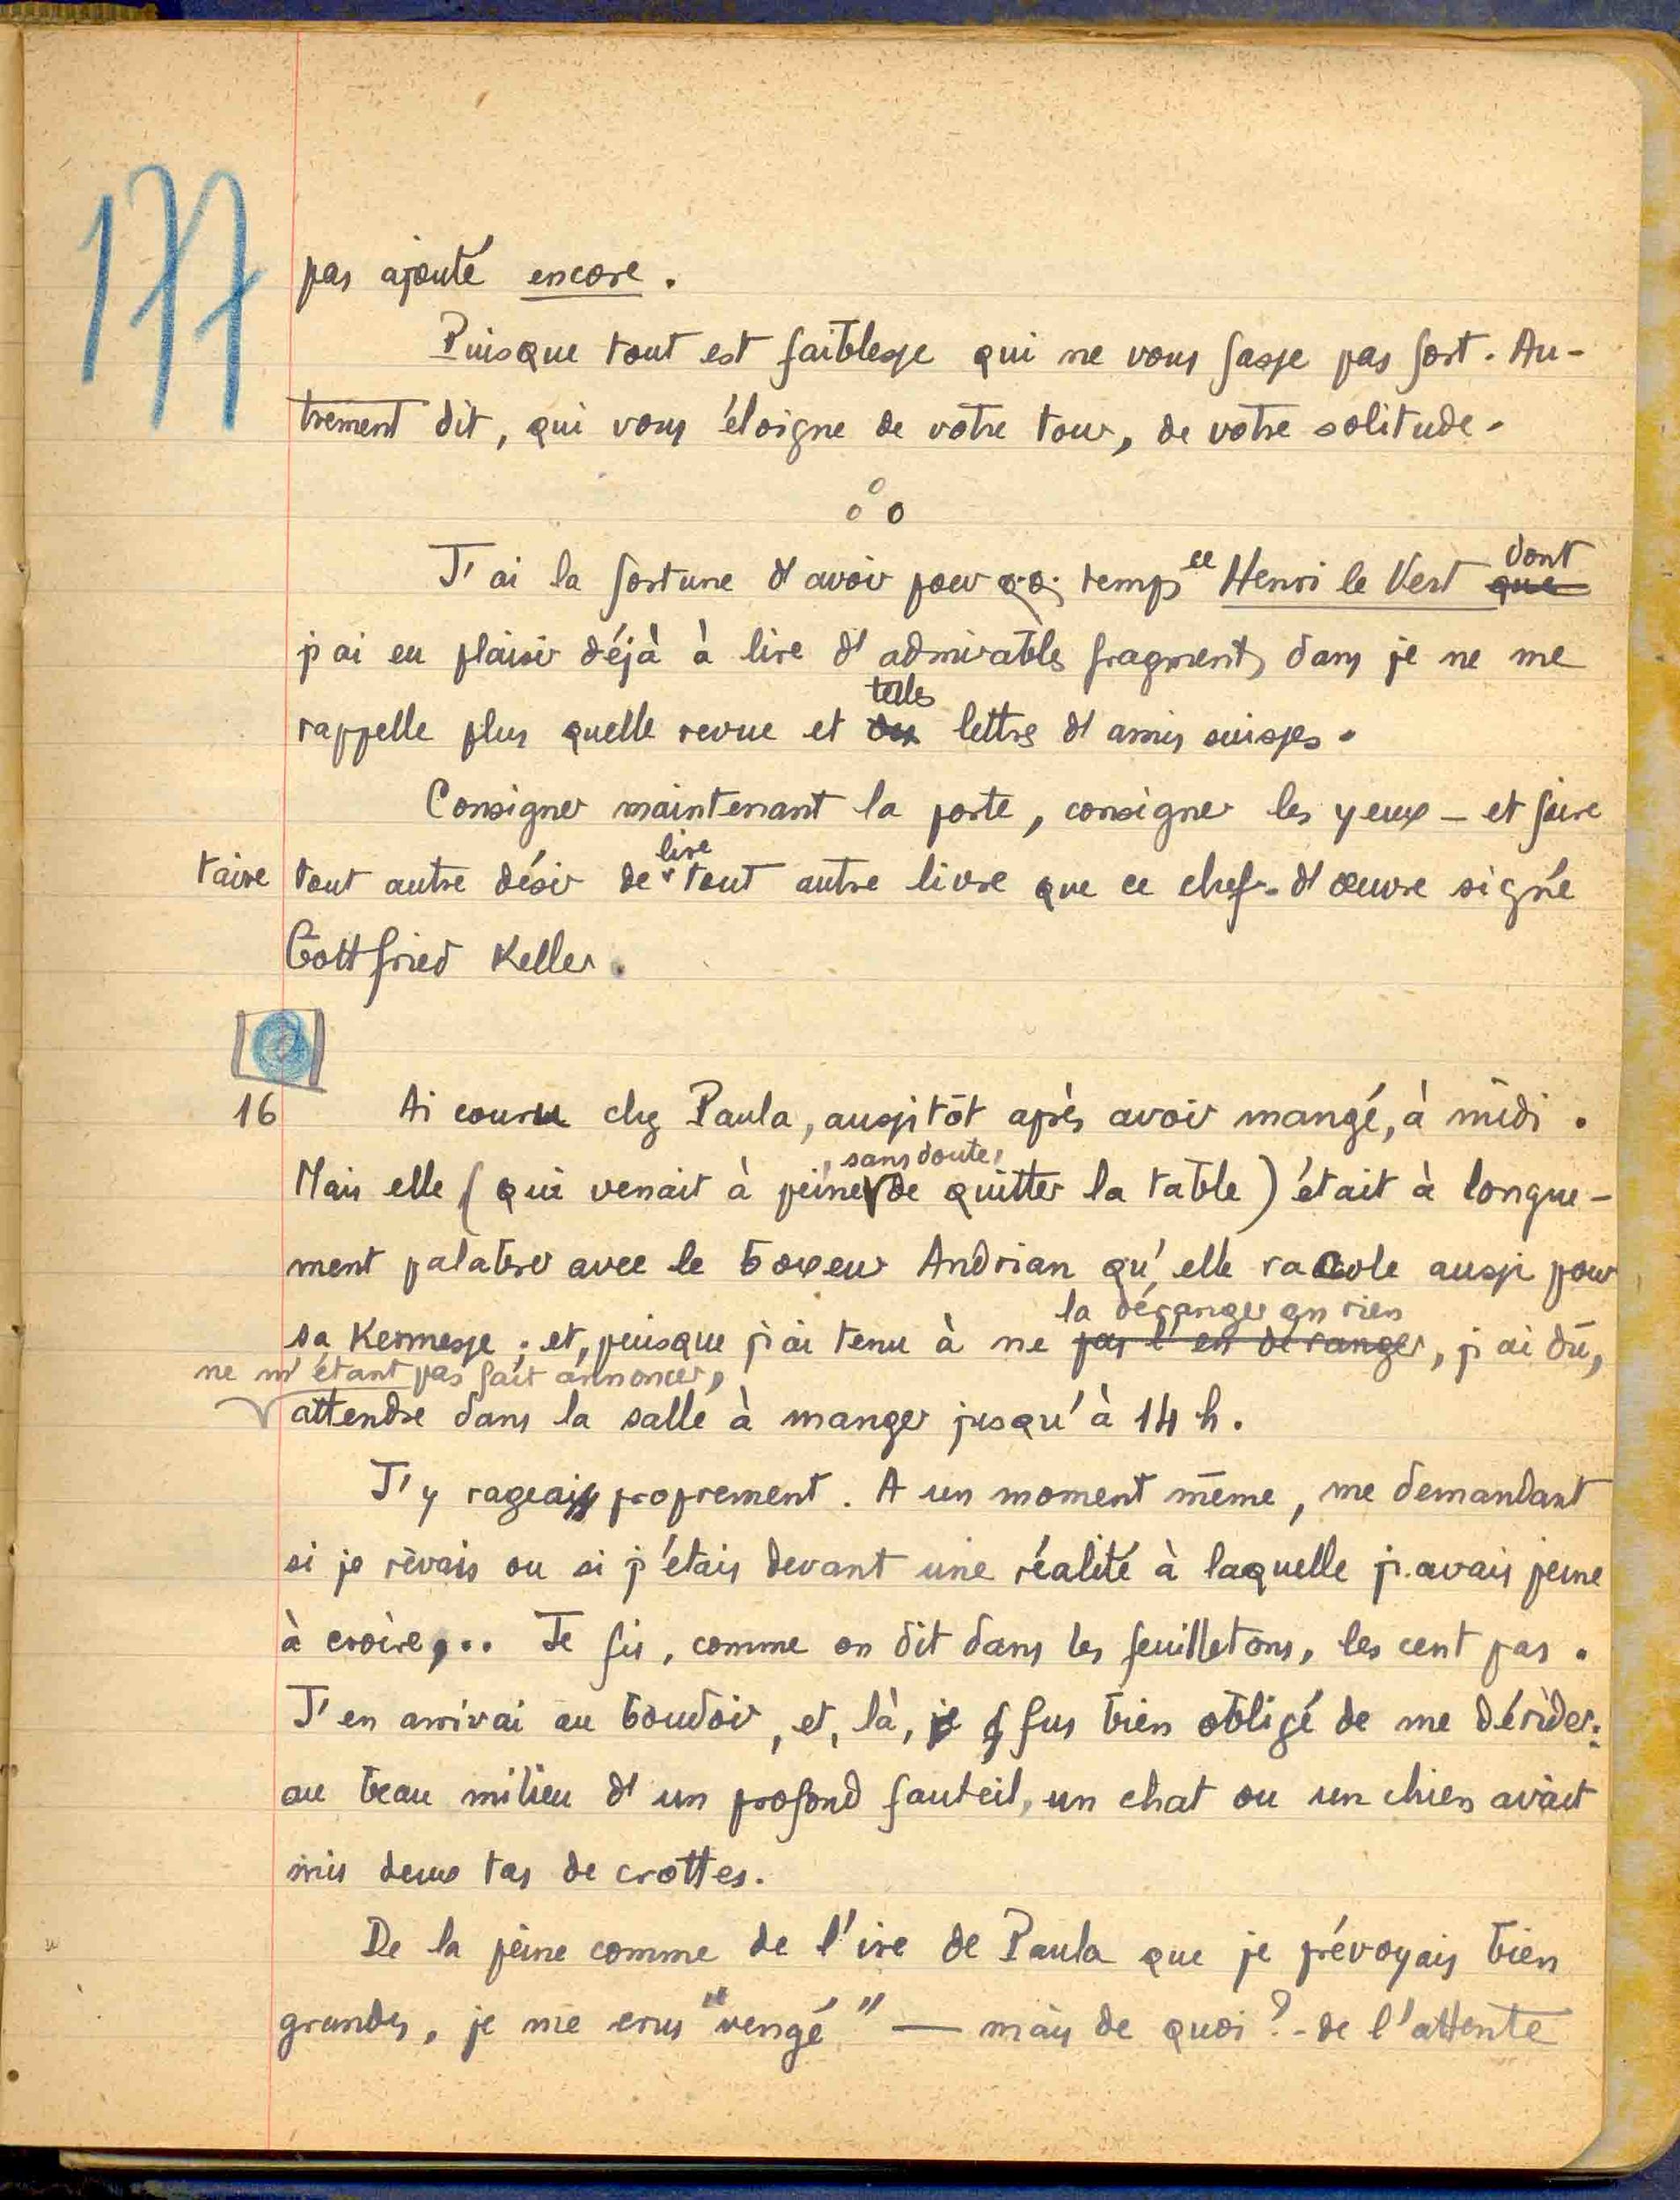 177
pas ajouté encore.
Puisque tout est faiblesse qui ne vous fasse pas fort. Au-
trement dit, qui vous éloigne de votre tour, de votre solitude.
o o o
dont
J'ai la fortune d'avoir pour qq. temps ce Henri le Vert que
j'ai eu plaisir déjà à lire d'admirables fragments dans je ne me
telles
rappelle plus quelle revue et des lettres d'amis suisses.
Consigner maintenant la porte, consigner les yeux – et faire
lire
taire tout autre désir de tout autre livre que ce chef-d'œuvre signé
Gottfried Keller.
16 Ai couru chez Paula, aussitôt après avoir mangé, à midi.
, sans doute,
Mais elle (qui venait à peine de quitter la table) était à longue-
ment palabrer avec le boxeur Andrian qu'elle racole aussi pour
la déranger en rien
sa Kermesse ; et, puisque j'ai tenu à ne pas l'en déranger, j'ai dû,
ne m'étant pas fait annoncer,
attendre dans la salle à manger jusqu'à 14 h.
J'y rageais proprement. A un moment même, me demandant
si je rêvais ou si j'étais devant une réalité à laquelle j'avais peine
à croire,.. Je fis, comme on dit dans les feuilletons, les cent pas.
J'en arrivai au boudoir, et, là, je fus bien obligé de me dérider:
au beau milieu d'un profond fauteil, un chat ou un chien avait
mis deux tas de crottes.
De la peine comme de l'ire de Paula que je prévoyais bien
grandes, je me crus "vengé" — mais de quoi? - de l'attente